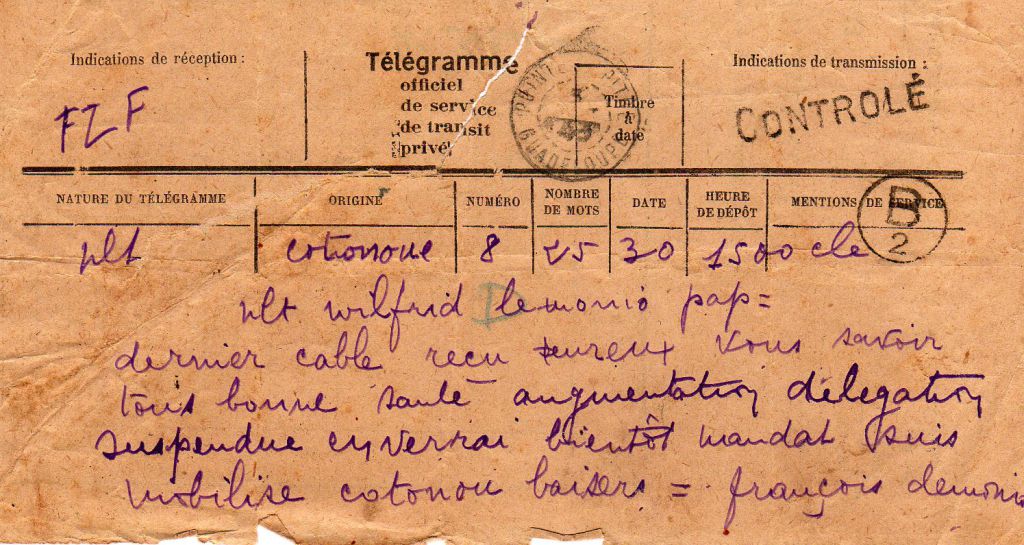 Indications de réception :
FZF
Télégramme
officiel
de service
de transit
privé
Timbre
à
date
Indications de transmission :
CONTROLÉ
NATURE DU TÉLÉGRAMME ORIGINE NUMÉRO NOMBRE DE MOTS DATE HEURE DE DÉPÔT MENTIONS DE SERVICE
B
2
nlt cotonoue 8 25 30 1500 cle
nlt wilfrid lemonio pap =
dernier cable recu eureux vous savoir
tous bonne santé augmentation délegation
suspendue enverrai bientôt mandat suis
mobilise cotonou baisers = françois